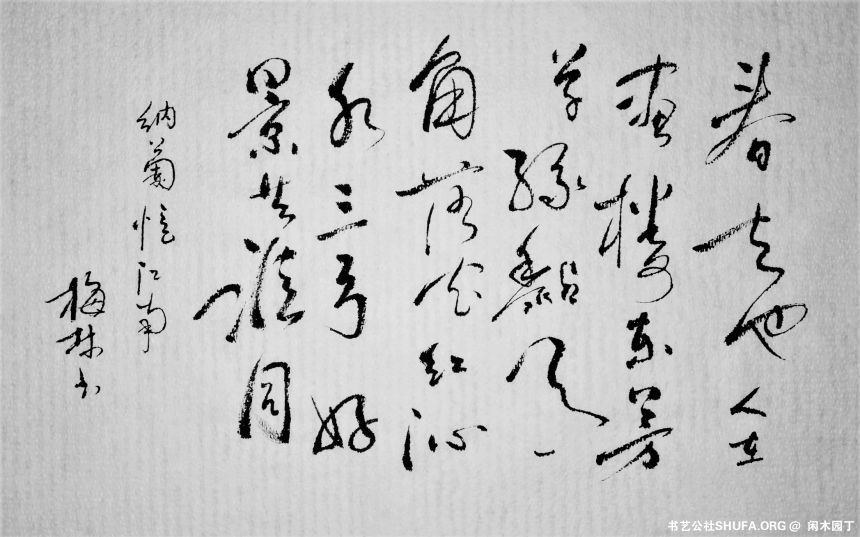 春去也人在
畫樓东芳
草绿黏天一
角落花红沁
水三弓好
景共谁同
纳蘭憶江南
梅林书
书艺公社SHUFA.ORG @ 闲木园丁